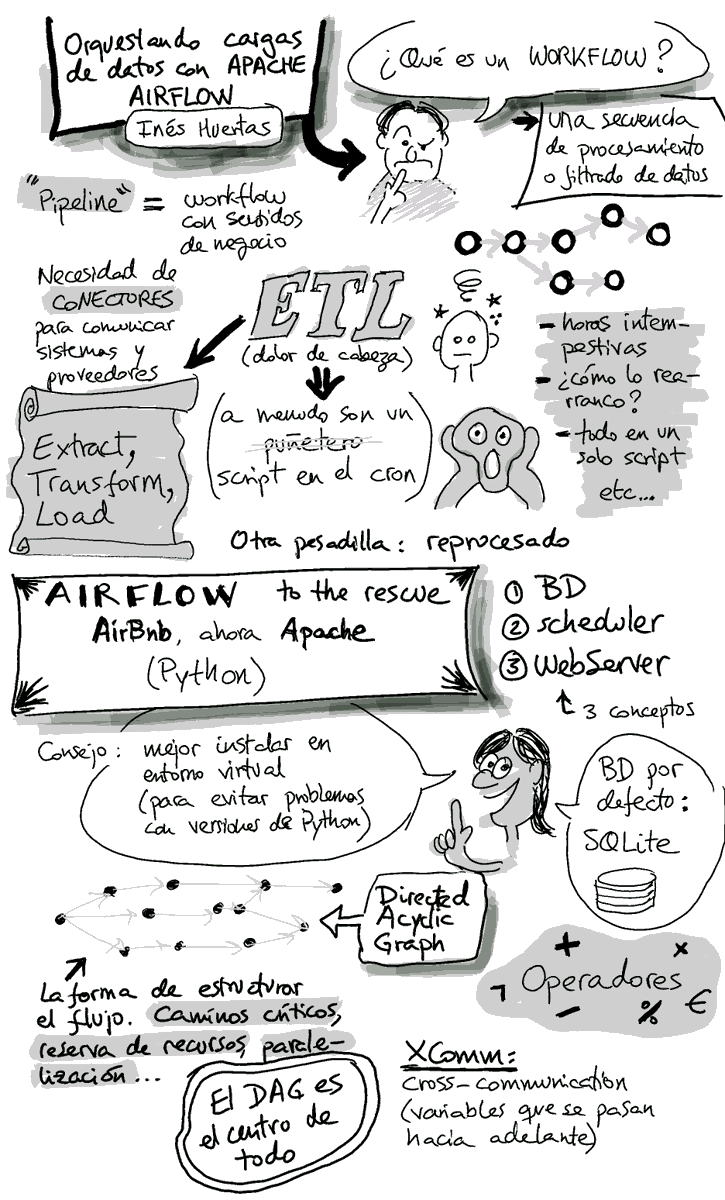 Orquestando cargas
de datos con APACHE
AIRFLOW
Inés Huertas
¿Qué es un WORKFLOW?
una secuencia
de procesamiento
o filtrado de datos
"Pipeline" = workflow
con sentidos
de negocio
Necesidad de
CONECTORES
para comunicar
sistemas y
proveedores
ETL
(dolor de cabeza)
(a menudo son un
puñetero
script en el cron)
- horas intem-
pestivas
- ¿cómo lo rea-
rranco?
- todo en un
solo script
etc...
Extract,
Transform,
Load
Otra pesadilla: reprocesado
AIRFLOW to the rescue
AirBnb, ahora Apache
(Python)
① BD
② scheduler
③ WebServer
3 conceptos
Consejo: mejor instalar en
entorno virtual
(para evitar problemas
con versiones de Python)
BD por
defecto:
SQLite
Directed
Acyclic
Graph
La forma de estructurar
el flujo. Caminos críticos,
reserva de recursos, parale-
lización...
+ x
¬ Operadores €
- %
El DAG es
el centro de
todo
XComm:
cross-communication
(variables que se pasan
hacia adelante)